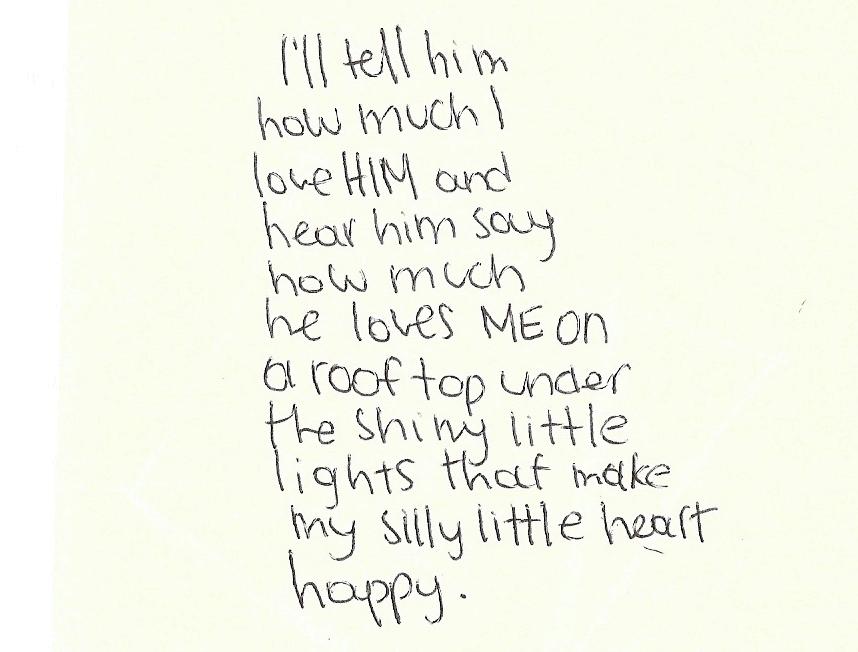 I'll tell him
how much I
love HIM and
hear him say
how much
he loves ME on
a roof top under
the shiny little
lights that make
my silly little heart
happy.